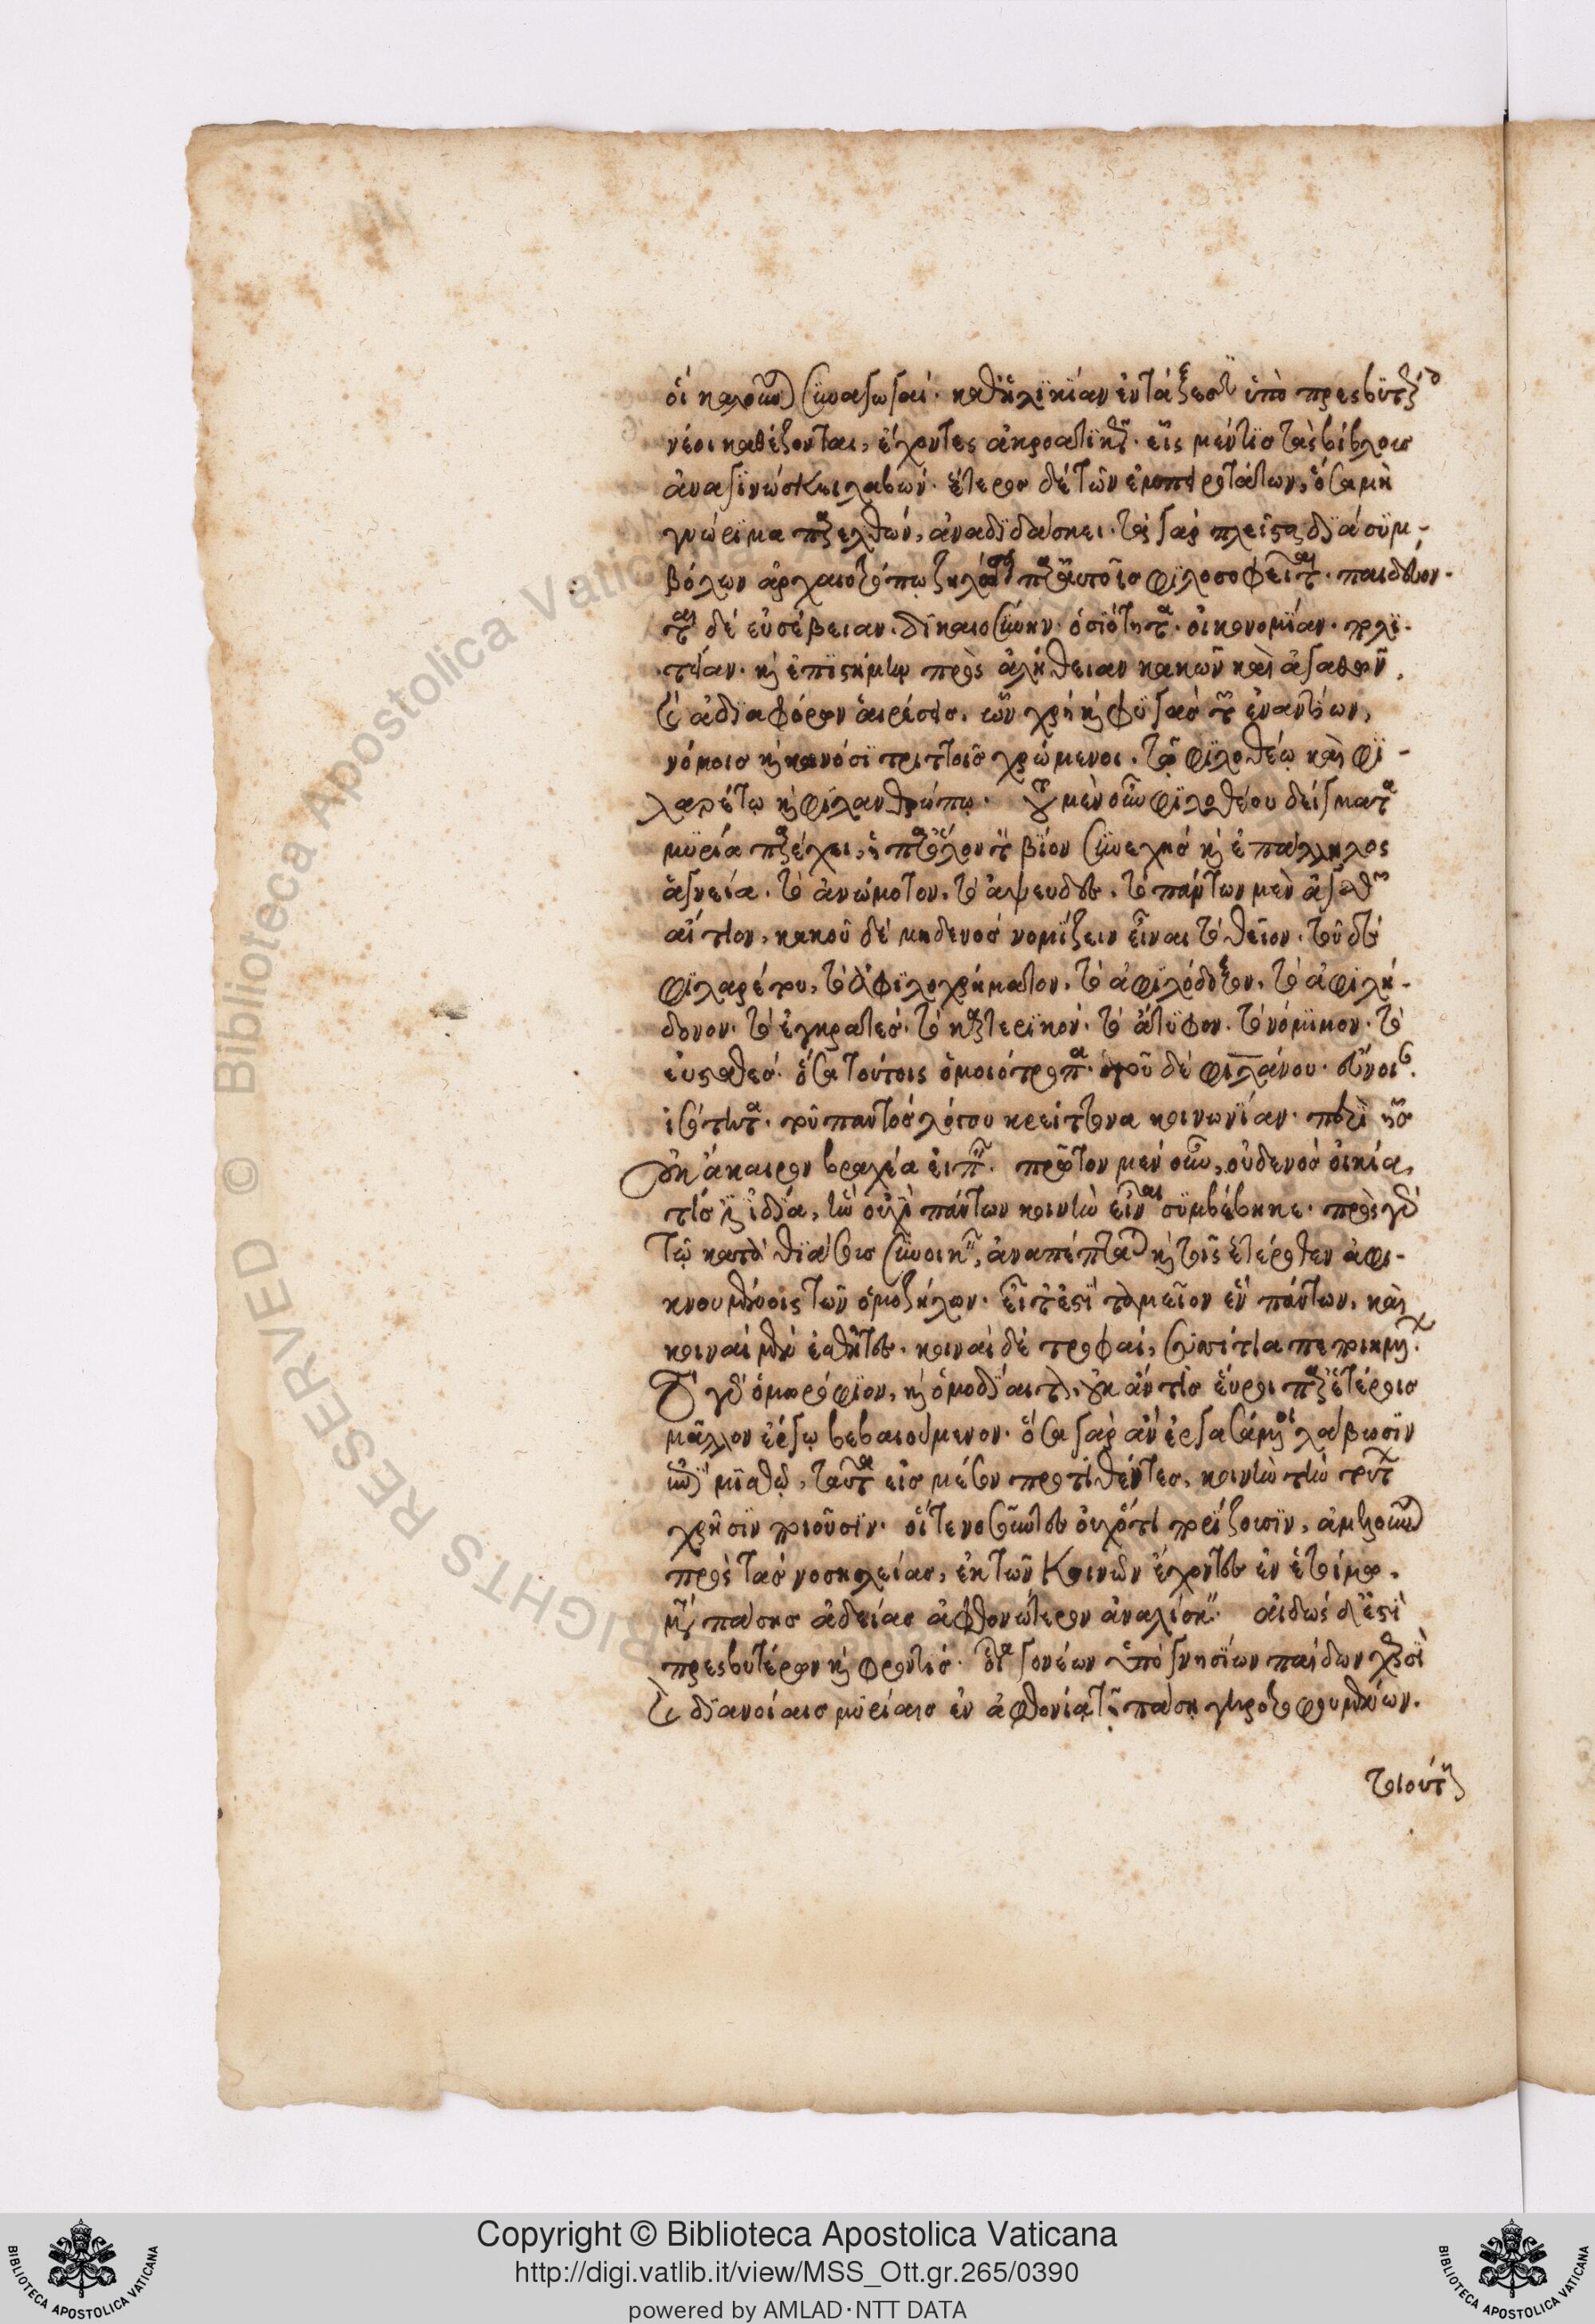 οἱ καλοῦνται συναγωγαί· καθ' ἡλικίαν ἐν τάξεσιν ὑπὸ πρεσβυτέροις
νέοι καθέζονται, ἔχοντες ἀκροατικῶς. εἷς μέν τις τὰς βίβλους
ἀναγινώσκει λαβών· ἕτερος δὲ τῶν ἐμπειροτάτων, ὅσα μὴ
γνώριμα παρελθών, ἀναδιδάσκει. τὰ γὰρ πλεῖστα διὰ συμ-
βόλων ἀρχαιοτρόπῳ ζηλώσει παρ' αὐτοῖς φιλοσοφεῖται. παιδεύον-
ται δὲ εὐσέβειαν. δικαιοσύνην. ὁσιότητα. οἰκονομίαν. πολι-
τείαν. καὶ ἐπιστήμην πρὸς ἀλήθειαν κακῶν καὶ ἀγαθῶν.
καὶ ἀδιαφόρων αἱρέσεις. ὧν χρὴ καὶ φυγὰς τῶν ἐναντίων,
νόμοις καὶ κανόσι τριττοῖς χρώμενοι. τῷ φιλοθέῳ καὶ φι-
λαρέτῳ καὶ φιλανθρώπῳ. τοῦ μὲν οὖν φιλοθέου δείγματα
μυρία παρέχει, ἡ παρ' ὅλον τὸν βίον συνεχὴς καὶ ἐπάλληλος
ἁγνεία. τὸ ἀνώμοτον. τὸ ἀψευδές. τὸ πάντων μὲν ἀγαθῶν
αἴτιον, κακοῦ δὲ μηδενὸς νομίζειν εἶναι τὸ θεῖον. τοῦ δὲ
φιλαρέτου, τὸ ἀφιλοχρήματον. τὸ ἀφιλόδοξον. τὸ ἀφιλή-
δονον. τὸ ἐγκρατές. τὸ καρτερικόν. τὸ ἄτυφον. τὸ νόμιμον. τὸ
εὐσταθές. ὅσα τούτοις ὁμοιότροπα. τοῦ δὲ φιλανου. εὔνοιαν.
ἰσότητα. τὴν παντὸς λόγου κρείττονα κοινωνίαν. περὶ ἧς
οὐκ ἄκαιρον βραχέα εἰπεῖν. πρῶτον μὲν οὖν, οὐδενὸς οἰκία,
τίς ἐστιν ἰδία, ἣν οὐχὶ πάντων κοινὴν εἶναι συμβέβηκε. πρὸς γὰρ
τῷ κατὰ θιάσους συνοικεῖν, ἀναπέπταται καὶ τοῖς ἑτέρωθεν ἀφι-
κνουμένοις τῶν ὁμοζήλων. εἶτ' ἐστὶ ταμεῖον ἓν πάντων. καὶ
κοιναὶ μὲν ἐσθῆτες. κοιναὶ δὲ τροφαί, συσσίτια πεποιημένων.
τὸ γὰρ ὁμωρόφιον, καὶ ὁμοδίαιτον, οὐκ ἄν τις εὕροι παρ' ἑτέροις
μᾶλλον ἔργῳ βεβαιούμενον. ὅσα γὰρ ἂν ἐργασάμενοι λάβωσιν
ἐπὶ μισθῷ, ταῦτα εἰς μέσον προτιθέντες, κοινὴν τὴν τούτων
χρῆσιν ποιοῦσιν. οἵ τε νοσοῦντες οὐχ ὅτι πορίζουσιν, ἀμελοῦνται
πρὸς τὰς νοσηλείας, ἐκ τῶν κοινῶν ἔχοντες ἐν ἑτοίμῳ.
μετὰ πάσης ἀδείας ἀφθονώτερον ἀναλίσκειν. αἰδὼς δ' ἐστὶ
πρεσβυτέρων καὶ φροντίς. οἷα γονέων ὑπὸ γνησίων παίδων χερσὶ
καὶ διανοίαις μυρίαις ἐν ἀφθονίᾳ τῇ πάσῃ γηροτροφουμένων.
τοιούτων